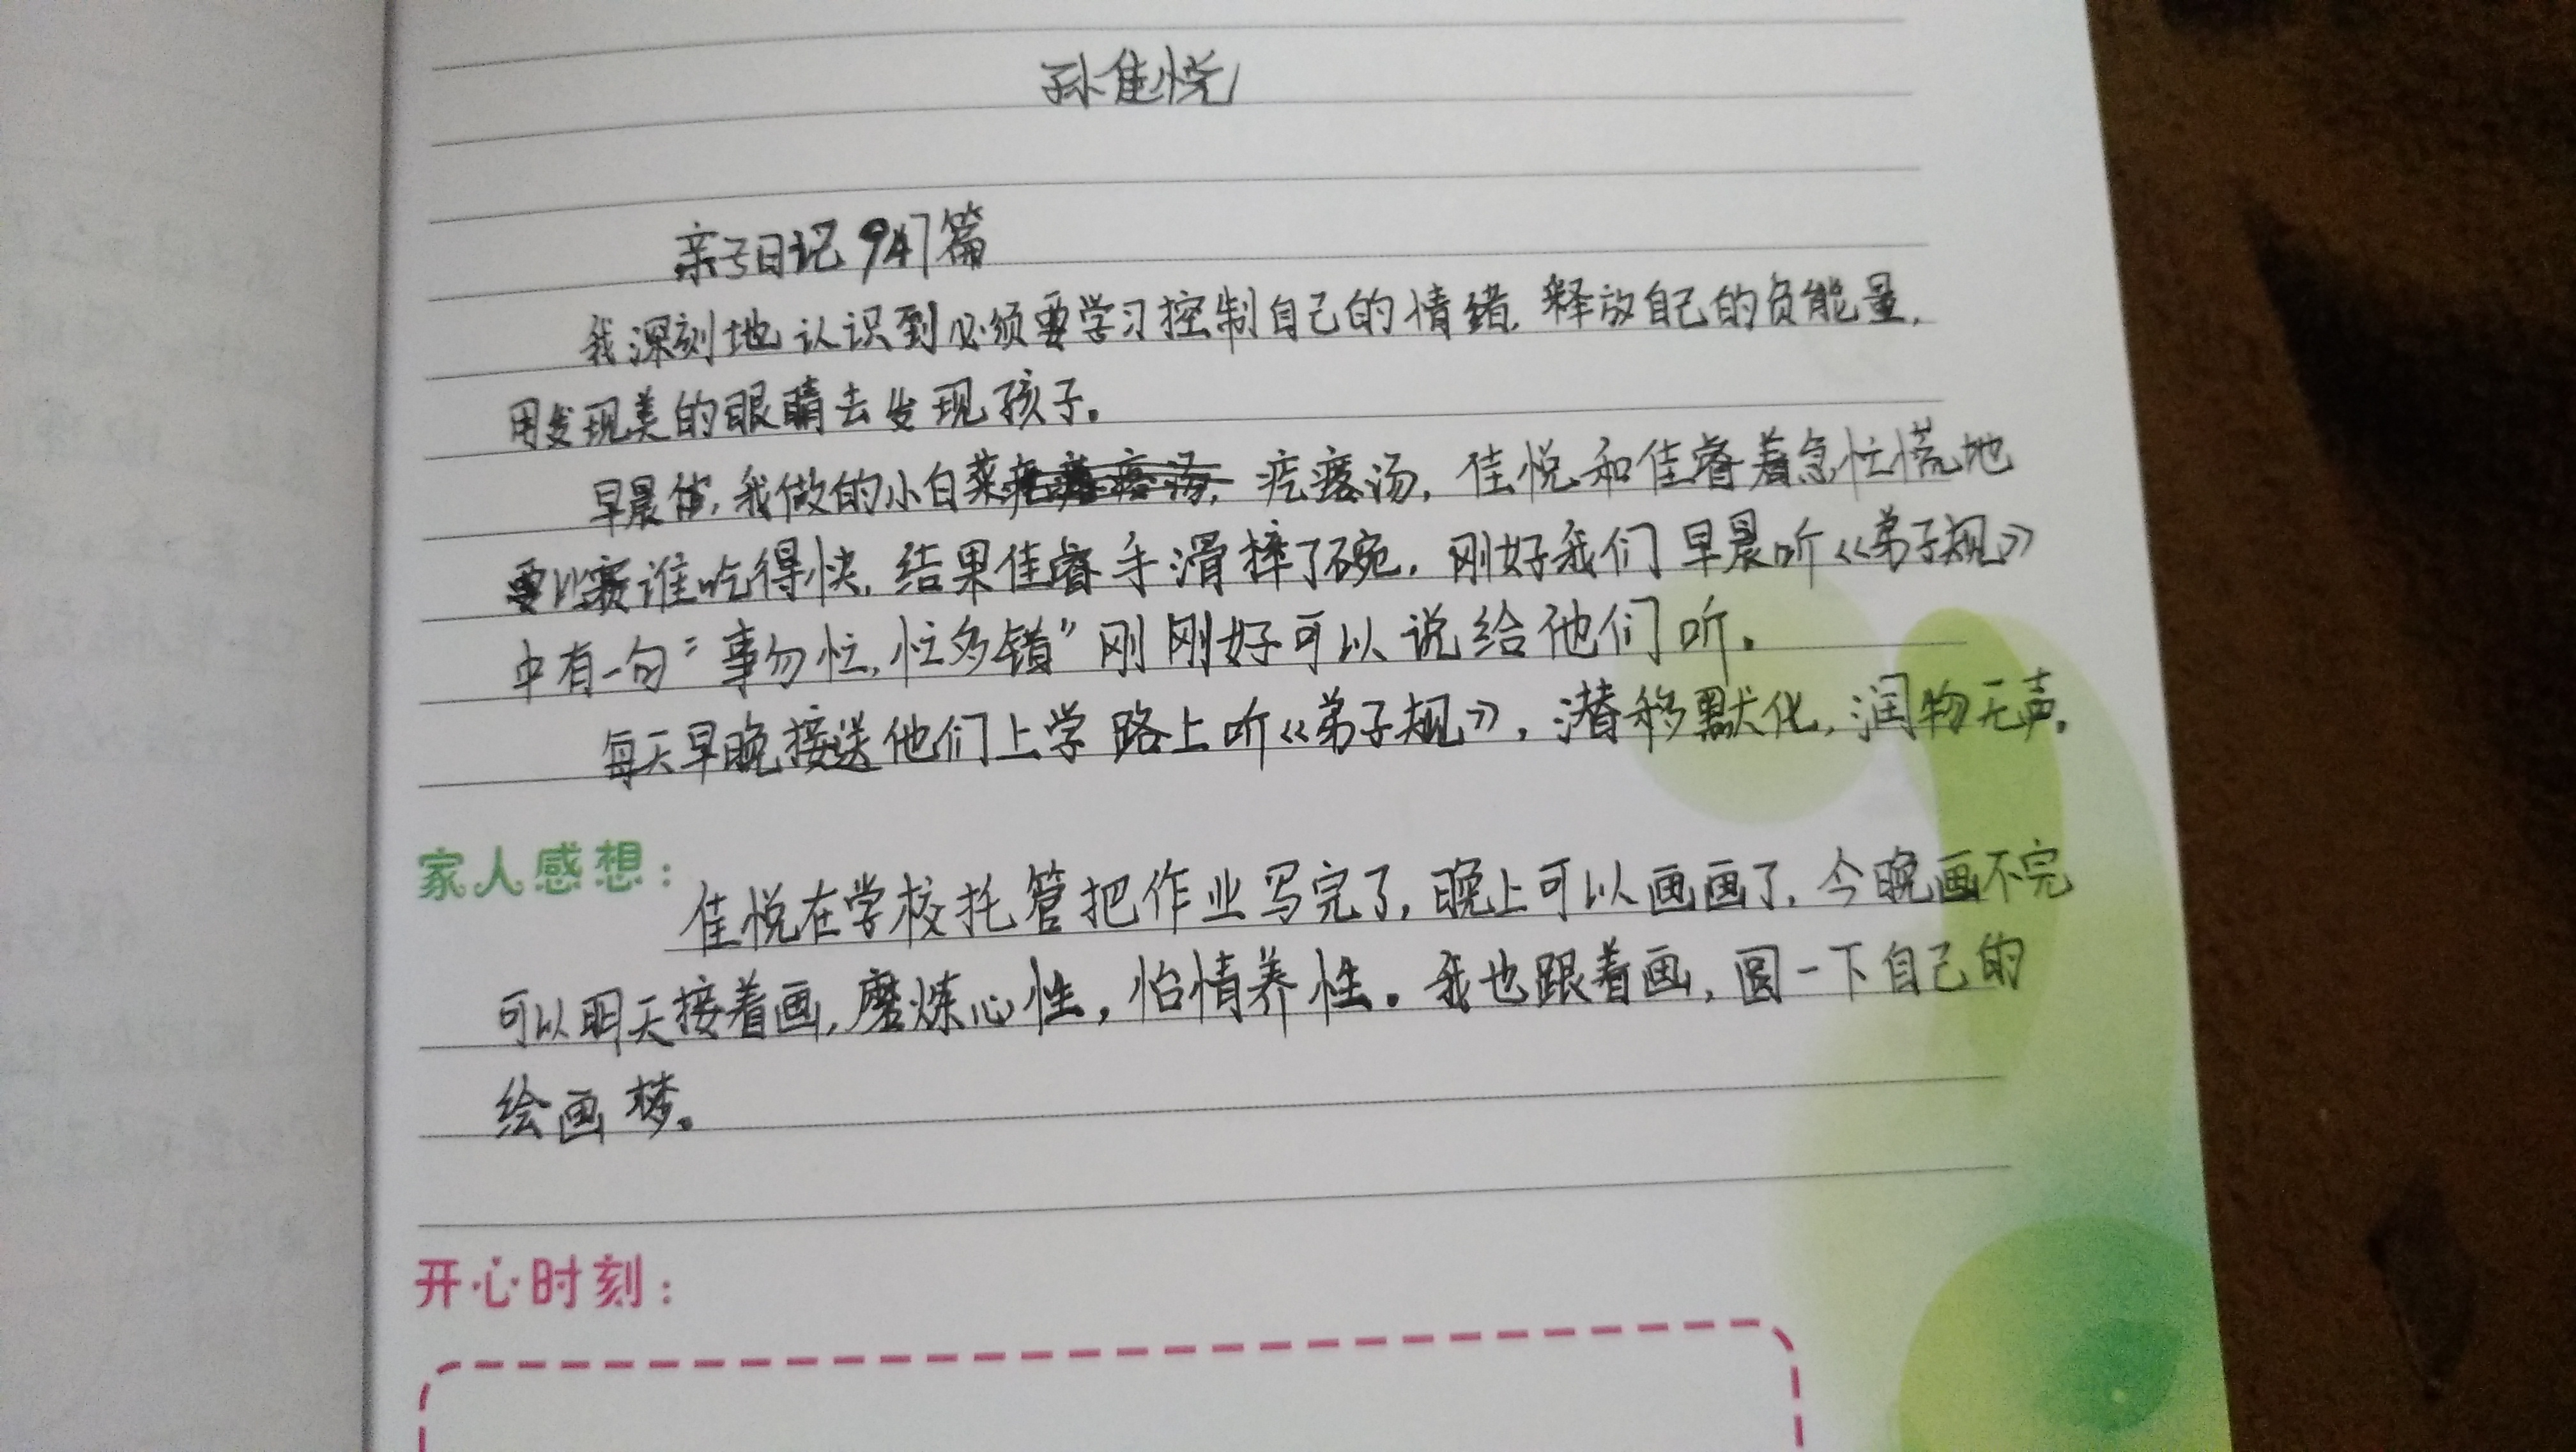 孙佳悦
亲子日记947篇
我深刻地认识到必须要学习控制自己的情绪,释放自己的负能量,
用发现美的眼睛去发现孩子。
早晨,我做的小白菜疙瘩汤,佳悦和佳睿着急忙慌地
要比赛谁吃得快,结果佳睿手滑摔了碗,刚好我们早晨听《弟子规》
中有一句“事勿忙,忙多错”刚刚好可以说给他们听。
每天早晚接送他们上学路上听《弟子规》,潜移默化,润物无声。
家人感想:佳悦在学校托管把作业写完了,晚上可以画画了,今晚画不完
可以明天接着画,磨炼心性,怡情养性。我也跟着画,圆一下自己的
绘画梦。
开心时刻: